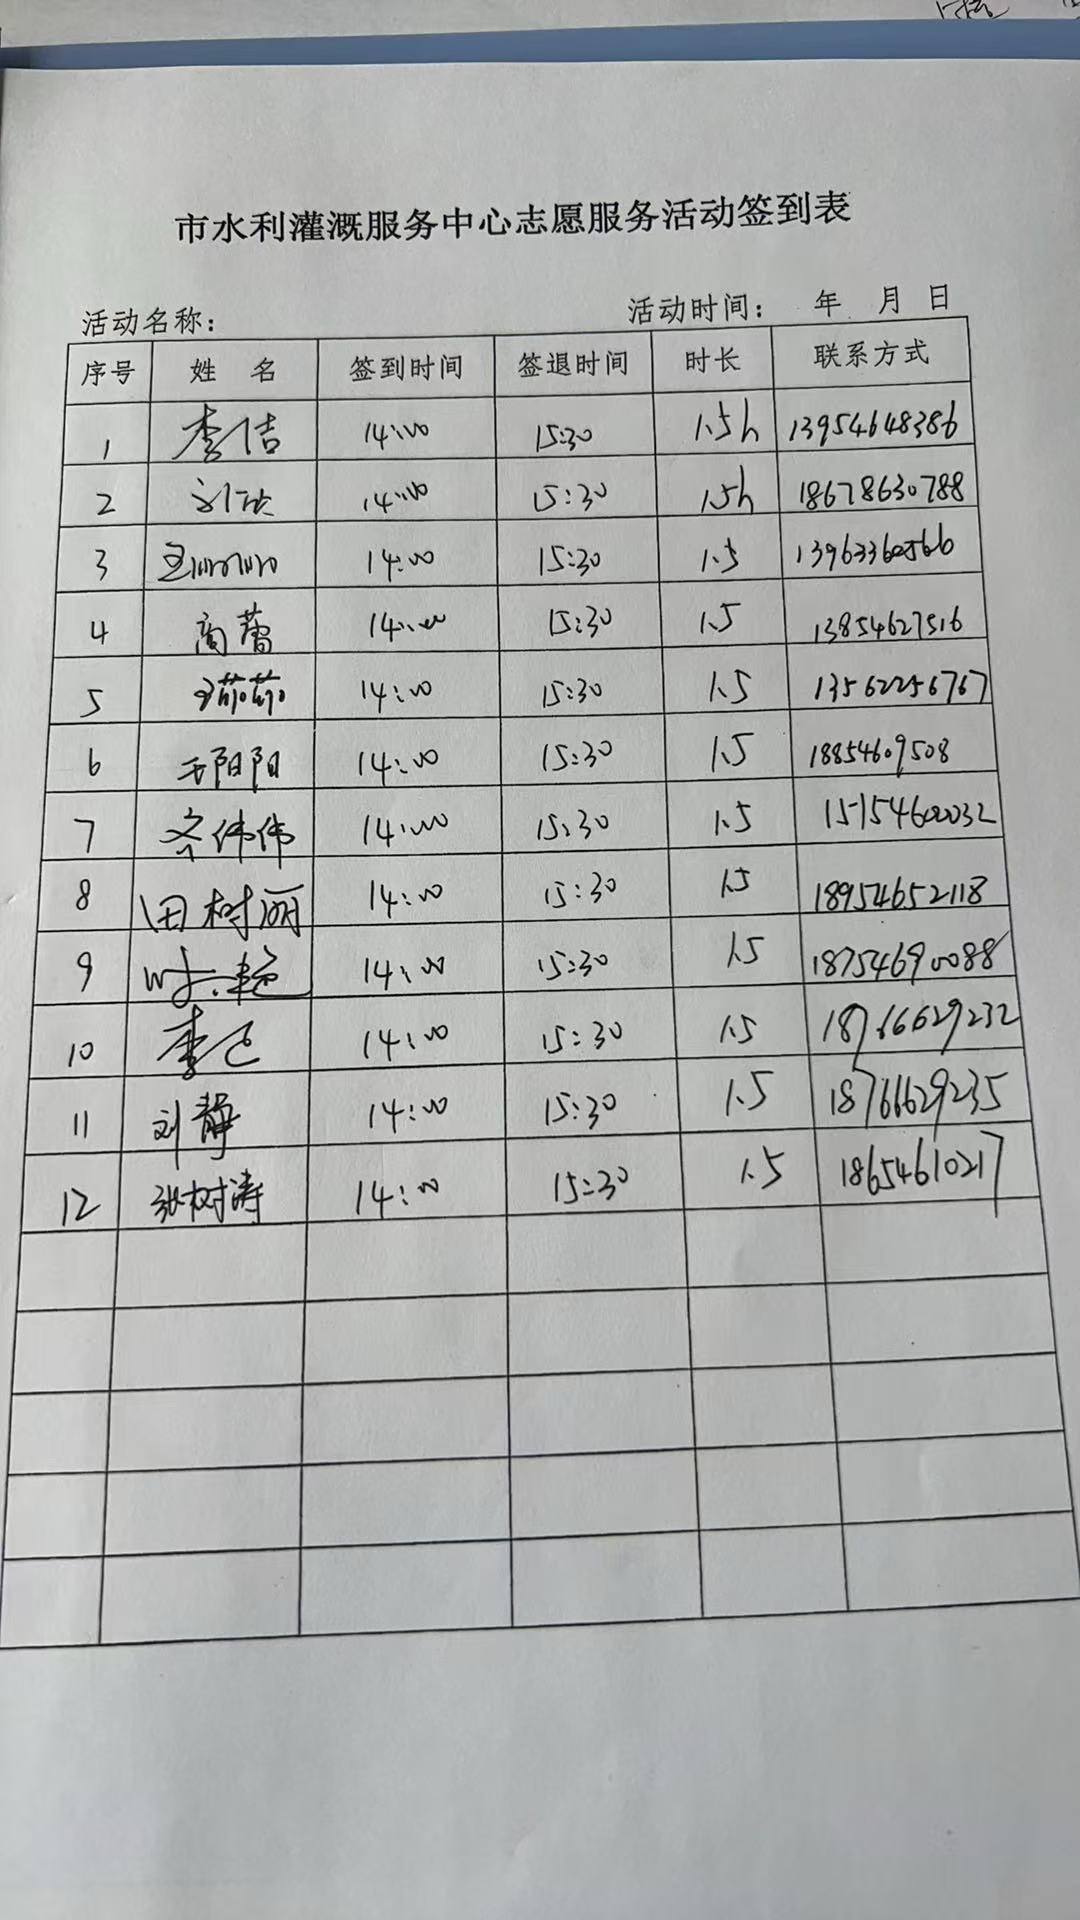 市水利灌溉服务中心志愿服务活动签到表
活动名称： 活动时间： 年 月 日
序号 姓 名 签到时间 签退时间 时长 联系方式
1 李洁 14:00 15:30 1.5h 13954648386
2 刘欣 14:00 15:30 1.5h 18678630788
3 14:00 15:30 1.5 13963360566
4 商蕾 14:00 15:30 1.5 13854627516
5 王茹茹 14:00 15:30 1.5 13562256767
6 王阳阳 14:00 15:30 1.5 18854609508
7 齐伟伟 14:00 15:30 1.5 15154600032
8 田树丽 14:00 15:30 1.5 18954652118
9 14:00 15:30 1.5 18754690088
10 李 14:00 15:30 1.5 18766629232
11 刘静 14:00 15:30 1.5 18766629235
12 张树涛 14:00 15:30 1.5 18654610217